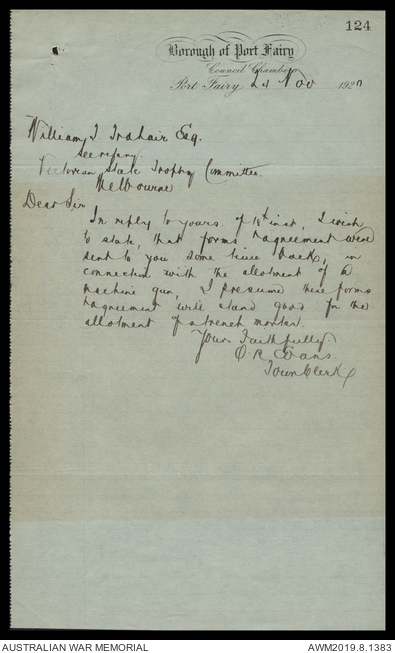 124
Borough of Port Fairy
Council Chambers
Port Fairy, 24 Nov 1920
William J Trahair Esq.
Secretary.
Victorian State Trophy Committee.
Melbourne
Dear Sir
In reply to yours of 19th inst, I wish
to state, that forms of agreement were
sent to you some time back, in
connection with the allotment of a
machine gun, I presume these forms
of agreement will stand good for the
allotment of a trench mortar.
Yours Faithfully.
O R Evans.
Town Clerk
AUSTRALIAN WAR MEMORIAL
AWM2019.8.1383